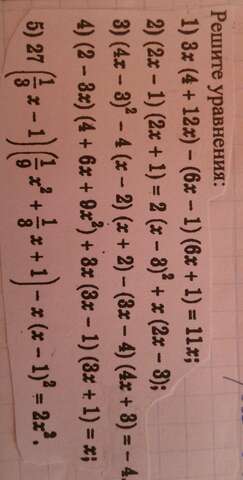 Решите уравнения:
1) 3x (4 + 12x) − (6x − 1) (6x + 1) = 11x;
2) (2x − 1) (2x + 1) = 2 (x − 3)² + x (2x − 3);
3) (4x − 3)² − 4 (x − 2) (x + 2) − (3x − 4) (4x + 3) = −4
4) (2 − 3x) (4 + 6x + 9x²) + 3x (3x − 1) (3x + 1) = x;
5) 27 (1/3 x − 1) (1/9 x² + 1/3 x + 1) − x (x − 1)² = 2x².